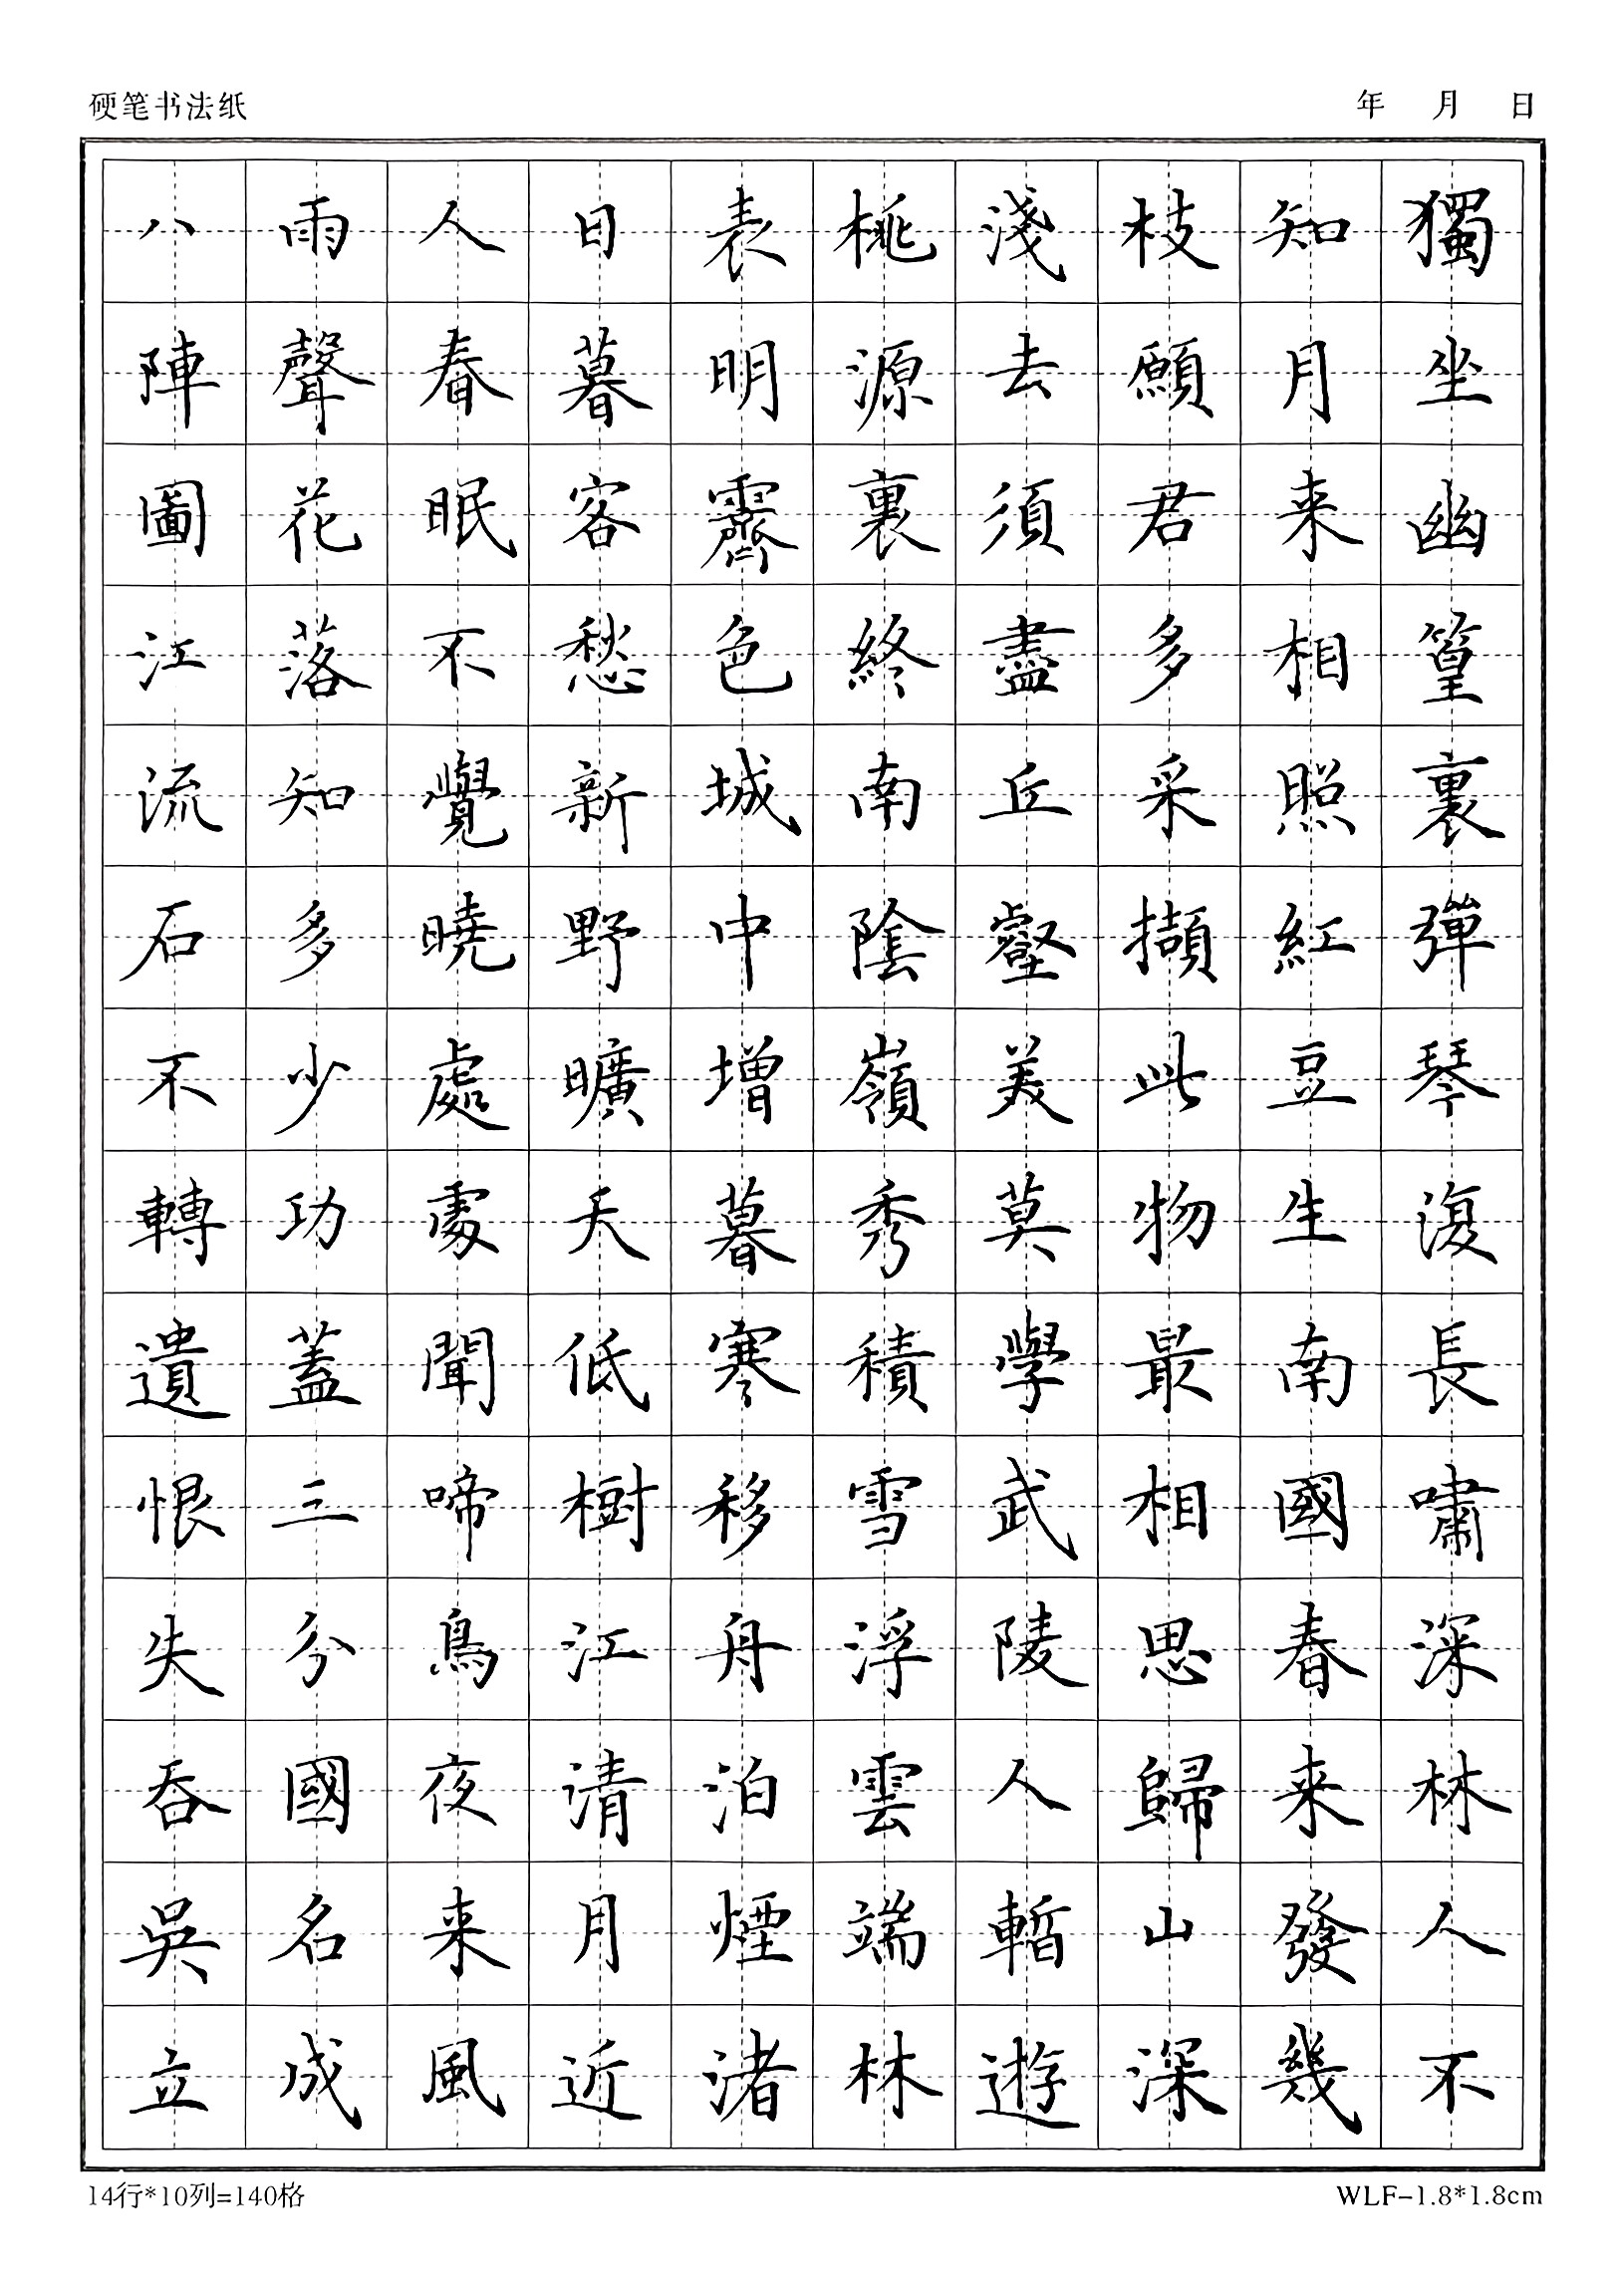 硬笔书法纸
年 月 日
獨坐幽篁裏彈琴復長嘯深林人不
知月来相照紅豆生南國春来發幾
枝願君多采擷此物最相思歸山深
淺去須盡丘壑美莫學武陵人暫遊
桃源裏終南陰嶺秀積雪浮雲端林
表明霽色城中增暮寒移舟泊煙渚
日暮客愁新野曠天低樹江清月近
人春眠不覺曉處處聞啼鳥夜来風
雨聲花落知多少功蓋三分國名成
八陣圖江流石不轉遺恨失吞吳立
14行*10列=140格
WLF-1.8*1.8cm